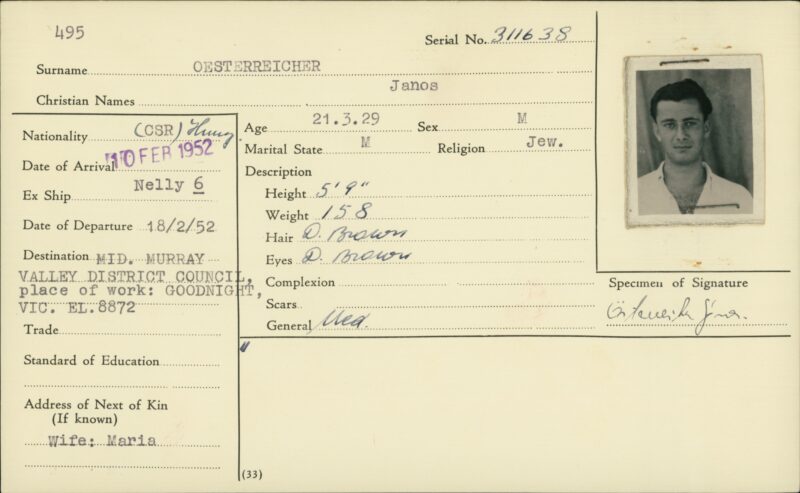 495
Serial No. 311638
Surname OESTERREICHER
Christian Names Janos
Nationality (CSR) Hung.
Date of Arrival 10 FEB 1952
Ex Ship Nelly 6
Date of Departure 18/2/52
Destination MID. MURRAY
VALLEY DISTRICT COUNCIL,
place of work: GOODNIGHT,
VIC. EL.8872
Trade
Standard of Education
Address of Next of Kin
(If known)
Wife: Maria
Age 21.3.29 Sex M
Marital State M Religion Jew.
Description
Height 5'9"
Weight 158
Hair D. Brown
Eyes D. Brown
Complexion
Scars
General Med.
"
(33)
Specimen of Signature